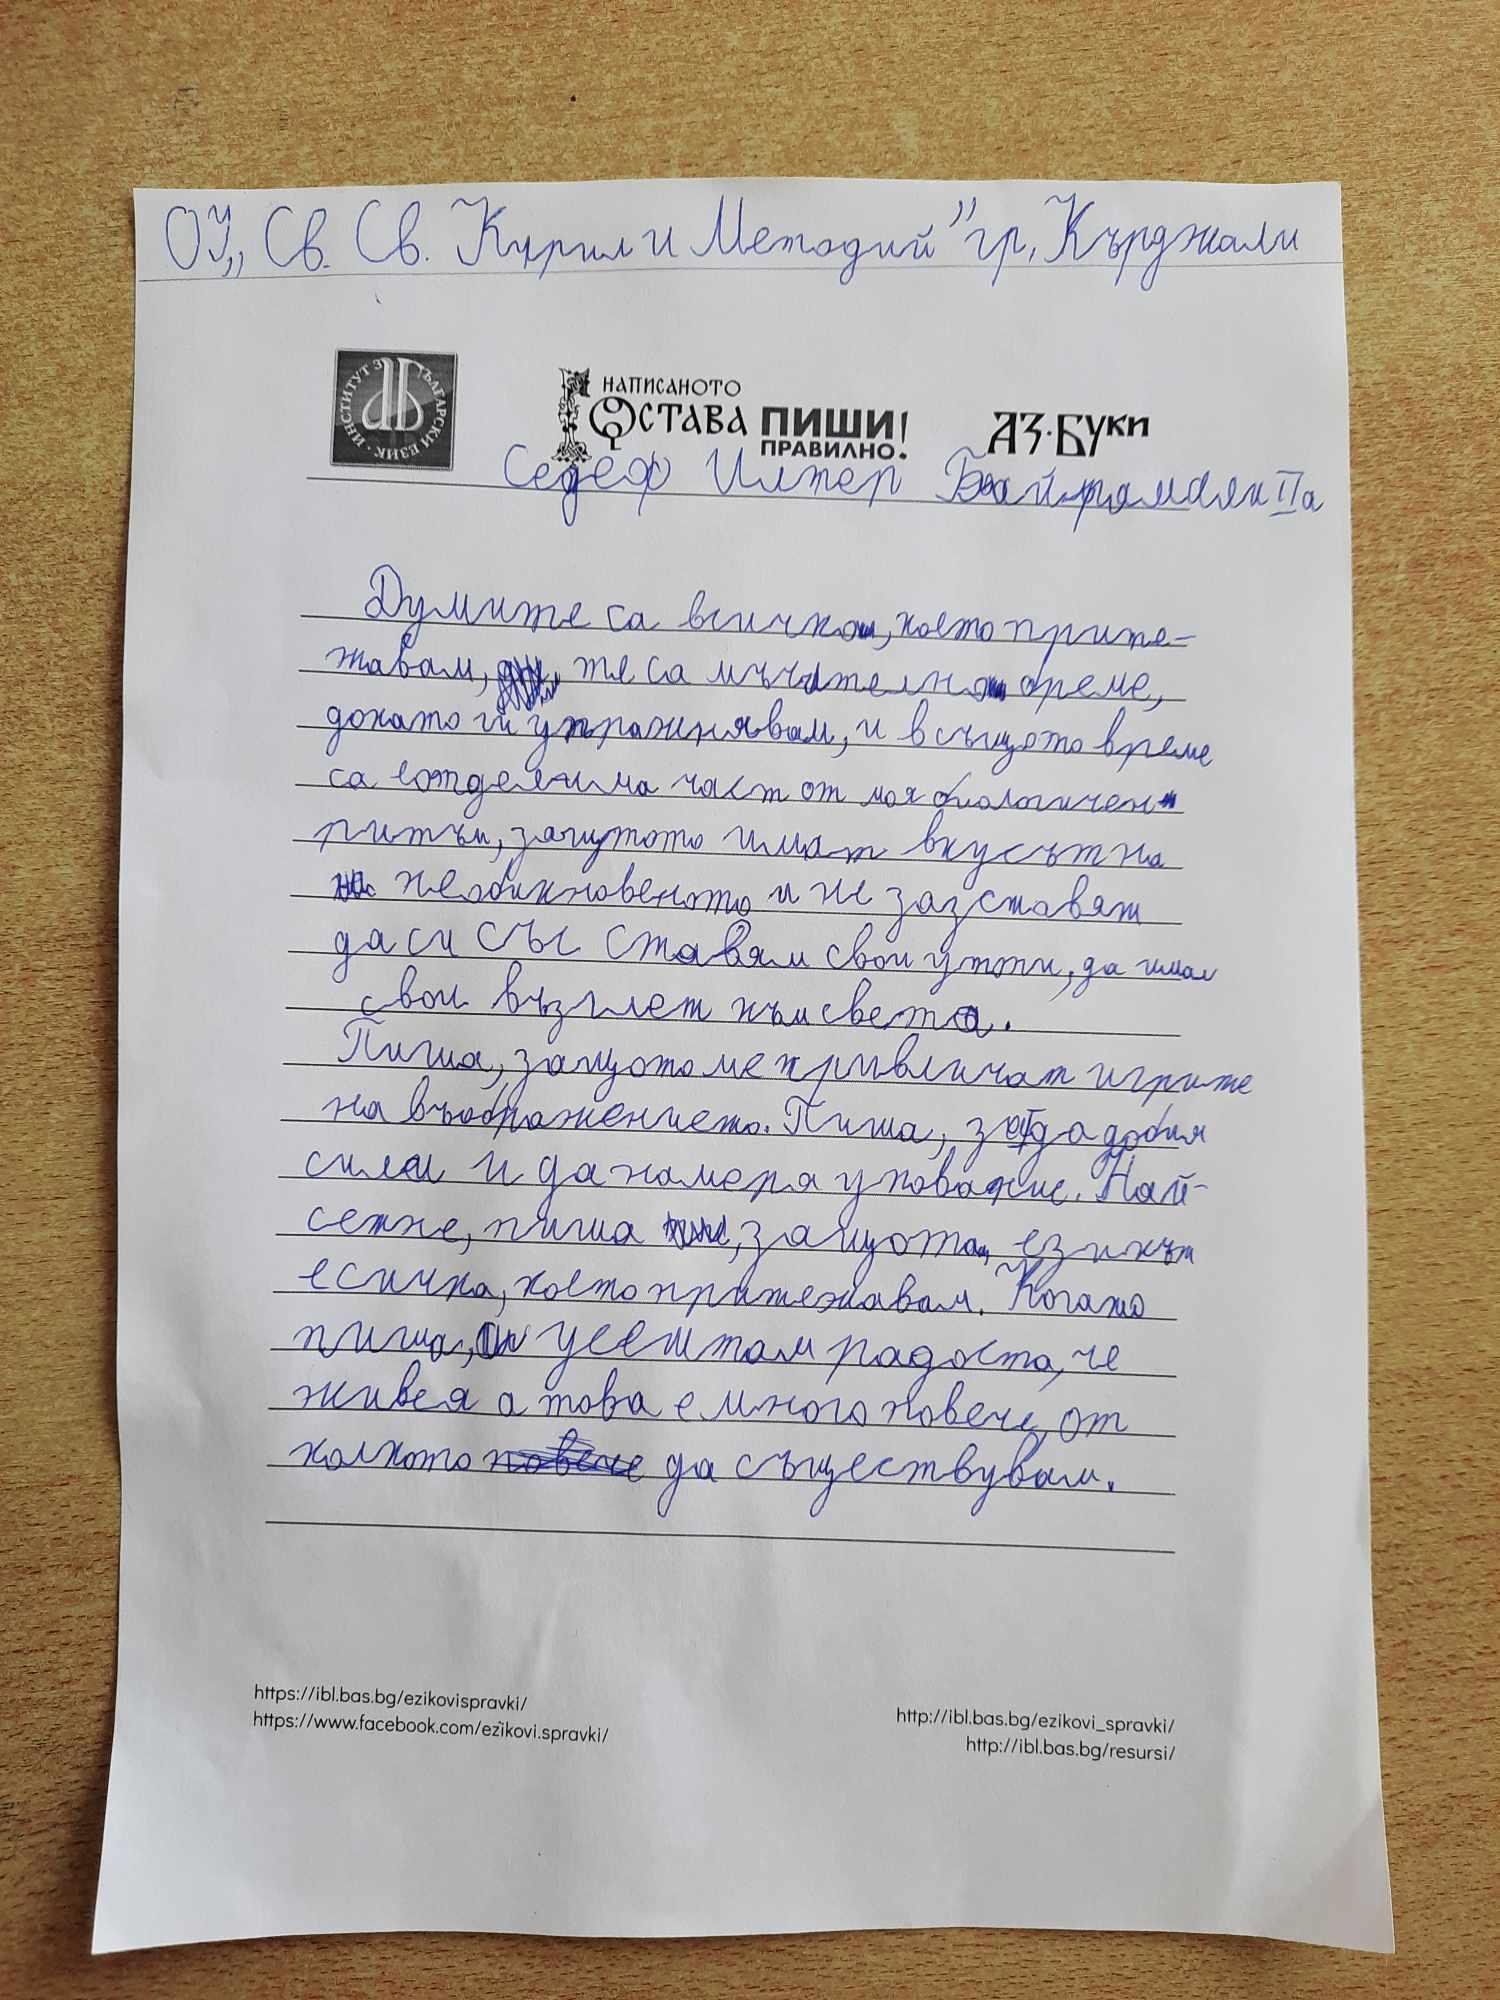 ОУ „Св. Св. Кирил и Методий" гр. Кърджали
ИНСТИТУТ ЗА БЪЛГАРСКИ ЕЗИК
НАПИСАНОТО
ОСТАВА ПИШИ!
ПРАВИЛНО!
АЗ·БУКИ
Седеф Илкер IIа
Думите са всичко, което прите-
жавам, те са мъчително бреме,
докато ги упражнявам, и в същото време
са еотделима част от моя биологичен
ритъм, защтото имат вкусът на
необикновеното и ме зазставят
да си със ставям свои утпи, да имам
свои възглет към света.
Пиша, защото ме привличат игрите
на въображението. Пиша, за да добия
сили и да намеря упование. Най-
сетне, пиша, защото езикът
е сичко, което притежавам. Когато
пиша, усештам радоста, че
живея а това е много повече, от
колкото да съществувам.
https://ibl.bas.bg/ezikovispravki/
https://www.facebook.com/ezikovi.spravki/
http://ibl.bas.bg/ezikovi_spravki/
http://ibl.bas.bg/resursi/